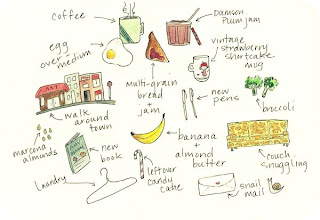 coffee
Damson
Plum jam
egg
over
medium
vintage
strawberry
shortcake
mug
ART
multi-grain
bread
+
jam
new
pens
broccoli
walk
around
town
marcona
almonds
new
book
banana
+
almond
butter
couch
snuggling
laundry
leftover
candy
cane
snail
mail